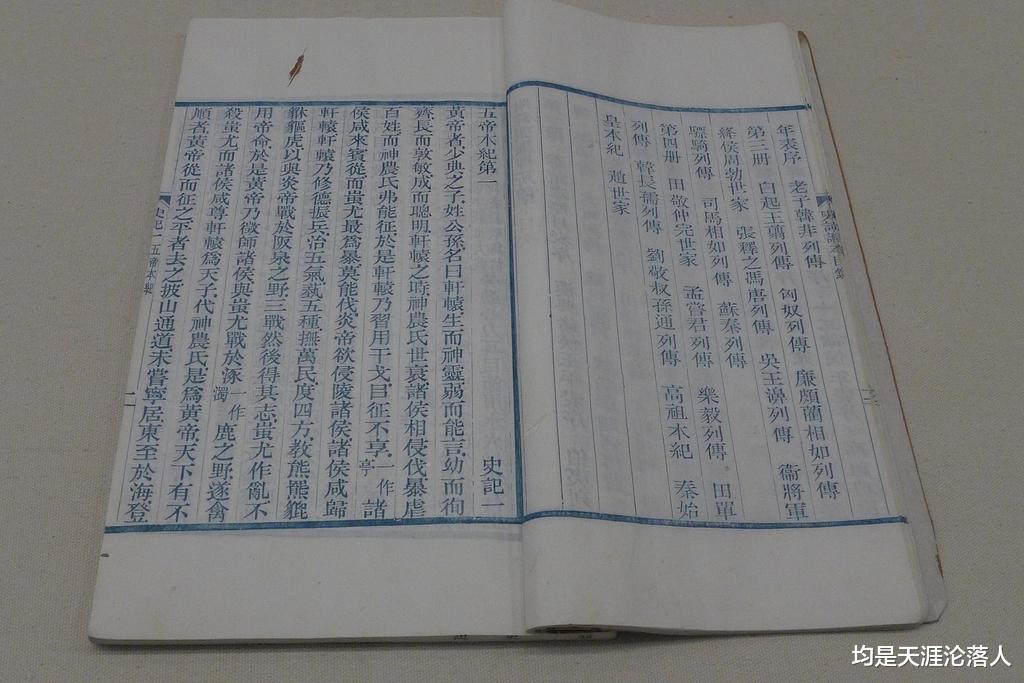 年表序 老子韓非列傳 匈奴列傳 廉頗藺相如列傳
第三册 白起王翦列傳
絳侯周勃世家 張釋之馮唐列傳 吳王濞列傳 衞將軍
驃騎列傳 司馬相如列傳 蘇秦列傳
第四册 田敬仲完世家 孟嘗君列傳 樂毅列傳 田單
列傳 韓長孺列傳 劉敬叔孫通列傳 高祖本紀 秦始
皇本紀 趙世家
五帝本紀第一 史記一
黃帝者、少典之子、姓公孫、名曰軒轅、生而神靈、弱而能言、幼而徇
齊、長而敦敏、成而聰明、軒轅之時、神農氏世衰、諸侯相侵伐、暴虐
百姓、而神農氏弗能征、於是軒轅乃習用干戈、以征不享、一作亭諸
侯咸來賓從、而蚩尤最爲暴、莫能伐、炎帝欲侵陵諸侯、諸侯咸歸
軒轅、軒轅乃修德振兵、治五氣、蓺五種、撫萬民、度四方、敎熊羆貔
貅貙虎、以與炎帝戰於阪泉之野、三戰、然後得其志、蚩尤作亂、不
用帝命、於是黃帝乃徵師諸侯、與蚩尤戰於涿一作濁鹿之野、遂禽
殺蚩尤、而諸侯咸尊軒轅爲天子、代神農氏、是爲黃帝、天下有不
順者、黃帝從而征之、平者去之、披山通道、未嘗寧居、東至於海、登
史記一 五帝本紀 二
均是天涯沦落人